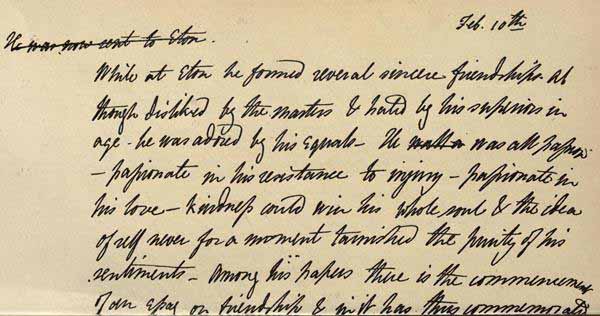 Feb. 10th
He was now sent to Eton.
While at Eton he formed several sincere friendships. Al
though disliked by the masters & hated by his superiors in
age - he was adored by his equals - He was all passion
- passionate in his resistance to injury - passionate in
his love - kindness could win his whole soul & the idea
of self never for a moment tarnished the purity of his
sentiments - Among his papers there is the commencement
of an essay on friendship & in it has thus commemorated